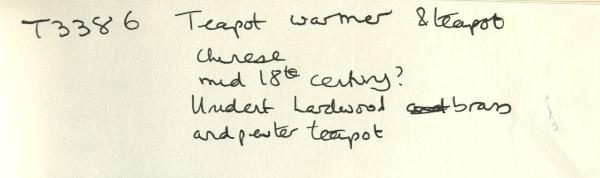 T3386 Teapot warmer & teapot
Chinese
mid 18th century?
Hardwood brass
and pewter teapot